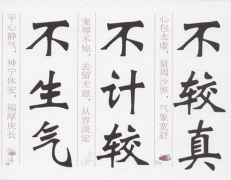 心包太虚,量周沙界,气象宽舒
不较真
宠辱不惊,去留无意,从容淡定
不计较
平心静气,神宁体安,福厚庆长
不生气